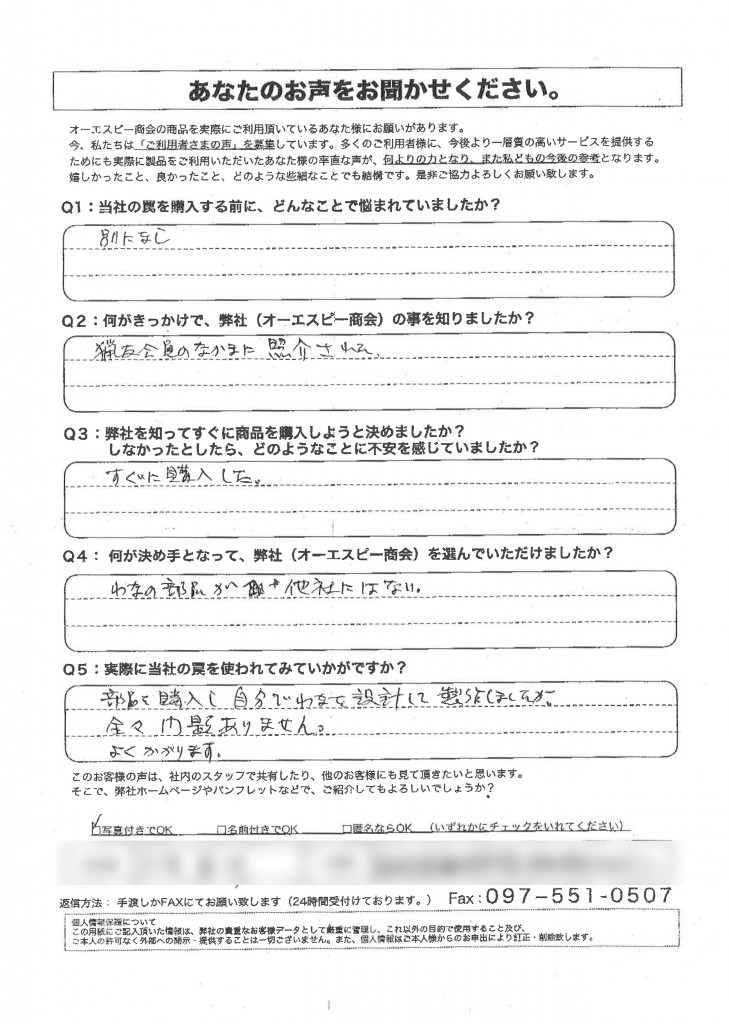 あなたのお声をお聞かせください。
オーエスピー商会の商品を実際にご利用頂いているあなた様にお願いがあります。
今、私たちは「ご利用者さまの声」を募集しています。多くのご利用者様に、今後より一層質の高いサービスを提供する
ためにも実際に製品をご利用いただいたあなた様の率直な声が、何よりの力となり、また私どもの今後の参考となります。
嬉しかったこと、良かったこと、どのような些細なことでも結構です。是非ご協力よろしくお願い致します。
Q1：当社の罠を購入する前に、どんなことで悩まれていましたか？
別になし
Q2：何がきっかけで、弊社（オーエスピー商会）の事を知りましたか？
猟友会員のなかまに照介されて
Q3：弊社を知ってすぐに商品を購入しようと決めましたか？
しなかったとしたら、どのようなことに不安を感じていましたか？
すぐに購入した。
Q4： 何が決め手となって、弊社（オーエスピー商会）を選んでいただけましたか？
わなの部品が 他社にはない。
Q5：実際に当社の罠を使われてみていかがですか？
部品を購入し自分でわなを設計して製作しましたが、
全々問題ありません。
よくかかります。
このお客様の声は、社内のスタッフで共有したり、他のお客様にも見て頂きたいと思います。
そこで、弊社ホームページやパンフレットなどで、ご紹介してもよろしいでしょうか？
☑写真付きでOK □名前付きでOK □匿名ならOK （いずれかにチェックをいれてください）
返信方法： 手渡しかFAXにてお願い致します（24時間受付けております。） Fax：097-551-0507
個人情報保護について
この用紙にご記入頂いた情報は、弊社の貴重なお客様データとして厳重に管理し、これ以外の目的で使用すること及び、
ご本人の許可なく外部への開示・提供することは一切ございません。また、個人情報はご本人様からのお申出により訂正・削除致します。